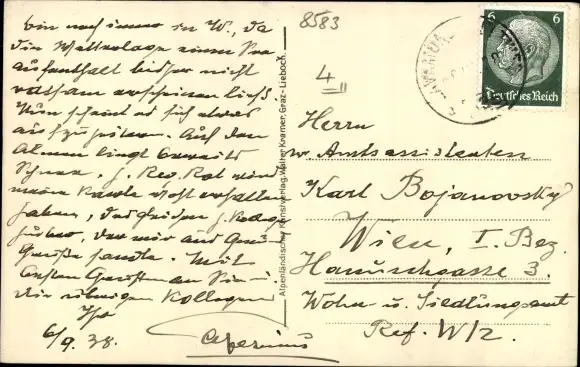 bin noch immer in W., da
die Wetterlage einen
aufenthalt bisher nicht
ratsam erscheinen ließ.
Nun scheint es sich etwas
aufzu Auf den
Almen liegt bereits
Schnee. H. Reg. Rat wird
meine Karte wohl erhalten
haben, desgleichen H. Kolleg
Huber, der mir auch
Grüße sandte. Mit
besten Grüßen an Sie u.
die übrigen Kollegen
Ihr
6/9. 38.
Alpenländischer Kunstverlag, Walter Kramer, Graz-Lieboch.
8583
4
6 6
Deutsches Reich
Herrn
Amtsassistenten
Karl Bojanovsky
Wien, I. Bez.
Hanuschgasse 3.
Wohn- u. Siedlungsamt
Ref. W/2.